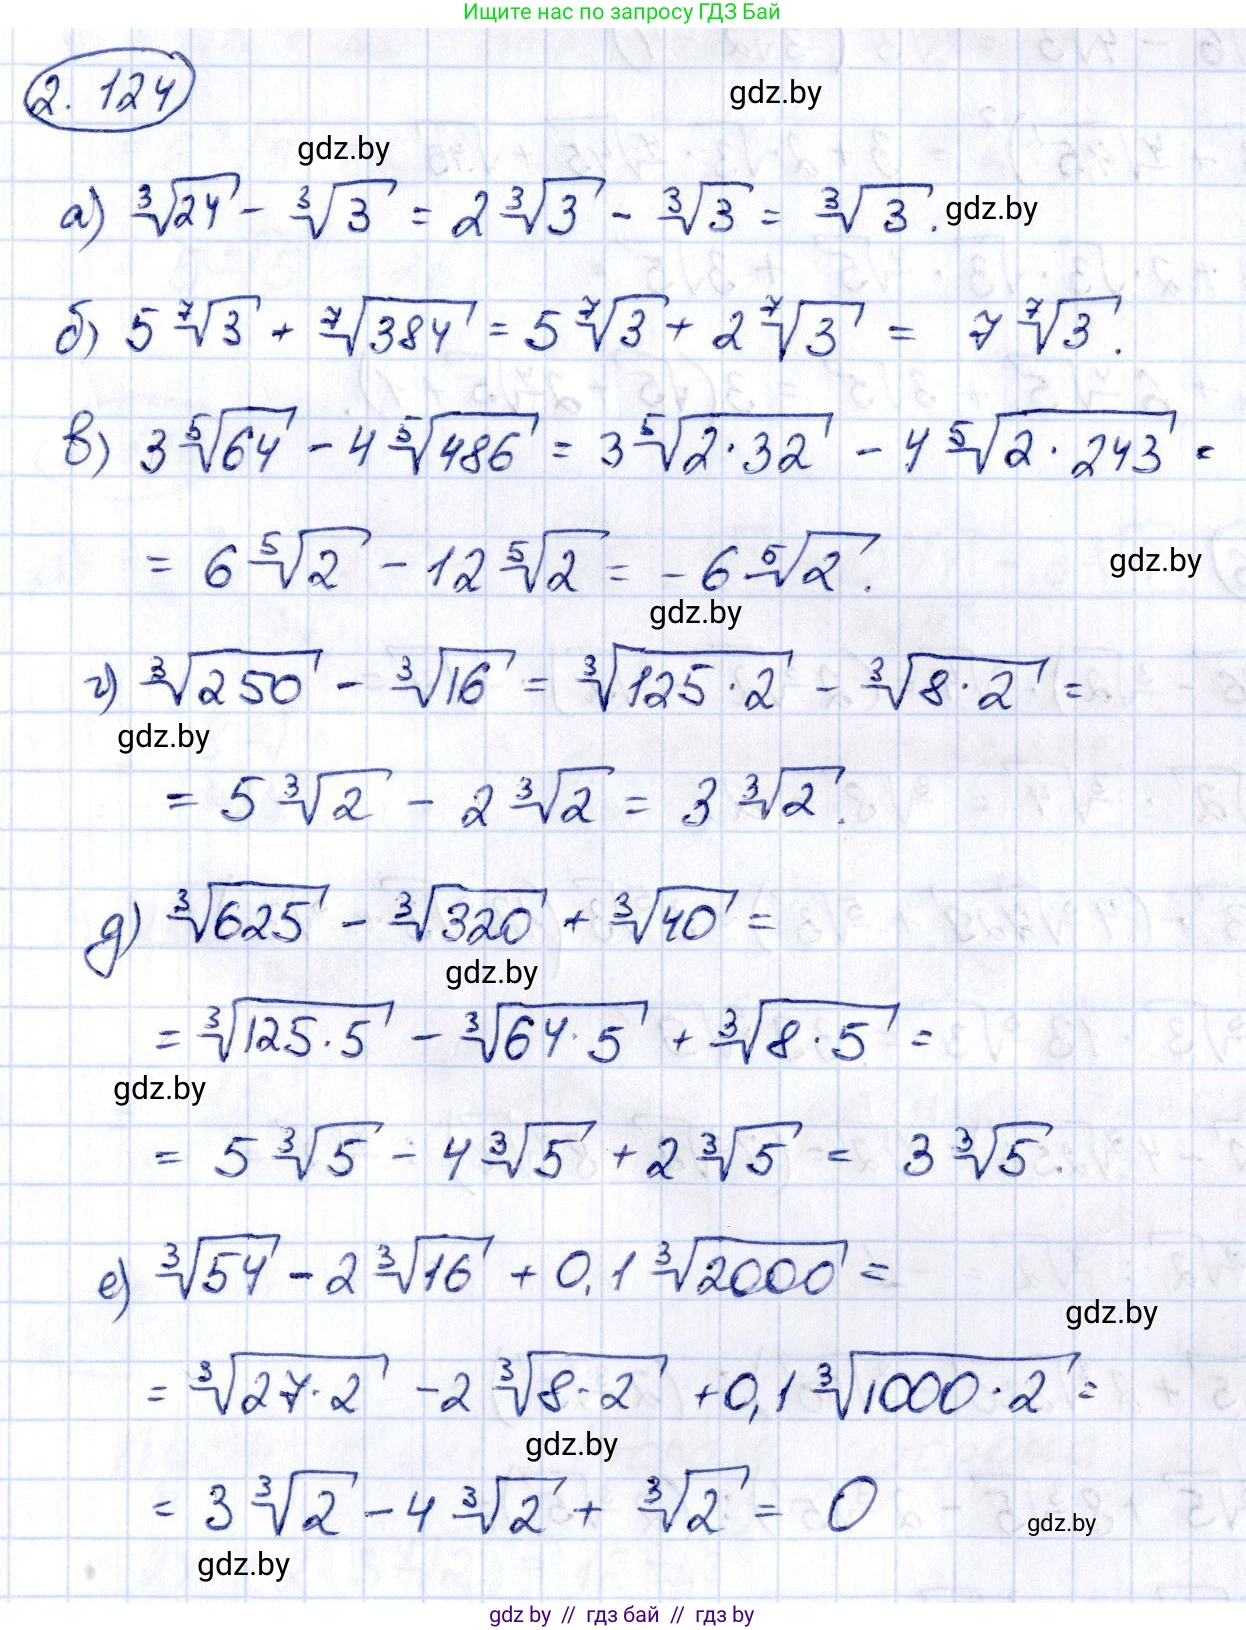 Ищите нас по запросу ГДЗ Бай
2. 124
gdz.by
gdz.by
а) ∛24 - ∛3 = 2∛3 - ∛3 = ∛3. gdz.by
б) 5 ⁷√3 + ⁷√384 = 5 ⁷√3 + 2 ⁷√3 = 7 ⁷√3.
в) 3 ⁵√64 - 4 ⁵√486 = 3 ⁵√(2·32) - 4 ⁵√(2·243) =
= 6 ⁵√2 - 12 ⁵√2 = -6 ⁵√2.
gdz.by
gdz.by
г) ∛250 - ∛16 = ∛(125·2) - ∛(8·2) =
gdz.by
= 5∛2 - 2∛2 = 3∛2.
д) ∛625 - ∛320 + ∛40 =
gdz.by
= ∛(125·5) - ∛(64·5) + ∛(8·5) =
gdz.by
= 5∛5 - 4∛5 + 2∛5 = 3∛5.
е) ∛54 - 2∛16 + 0,1∛2000 =
gdz.by
= ∛(27·2) - 2∛(8·2) + 0,1∛(1000·2) =
gdz.by
= 3∛2 - 4∛2 + ∛2 = 0
gdz.by
gdz.by
gdz by // гдз бай // гдз by